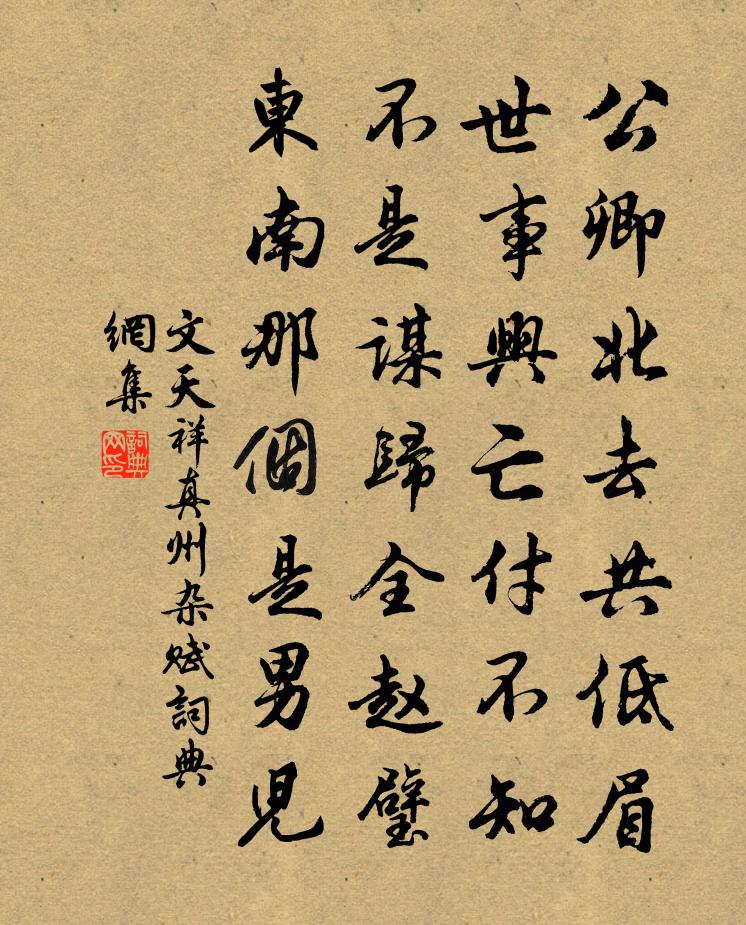 公卿北去共低眉
世事興亡付不知
不是謀歸全赵璧
東南那個是男児
文天祥真州杂赋詞典
網集
詞典網印